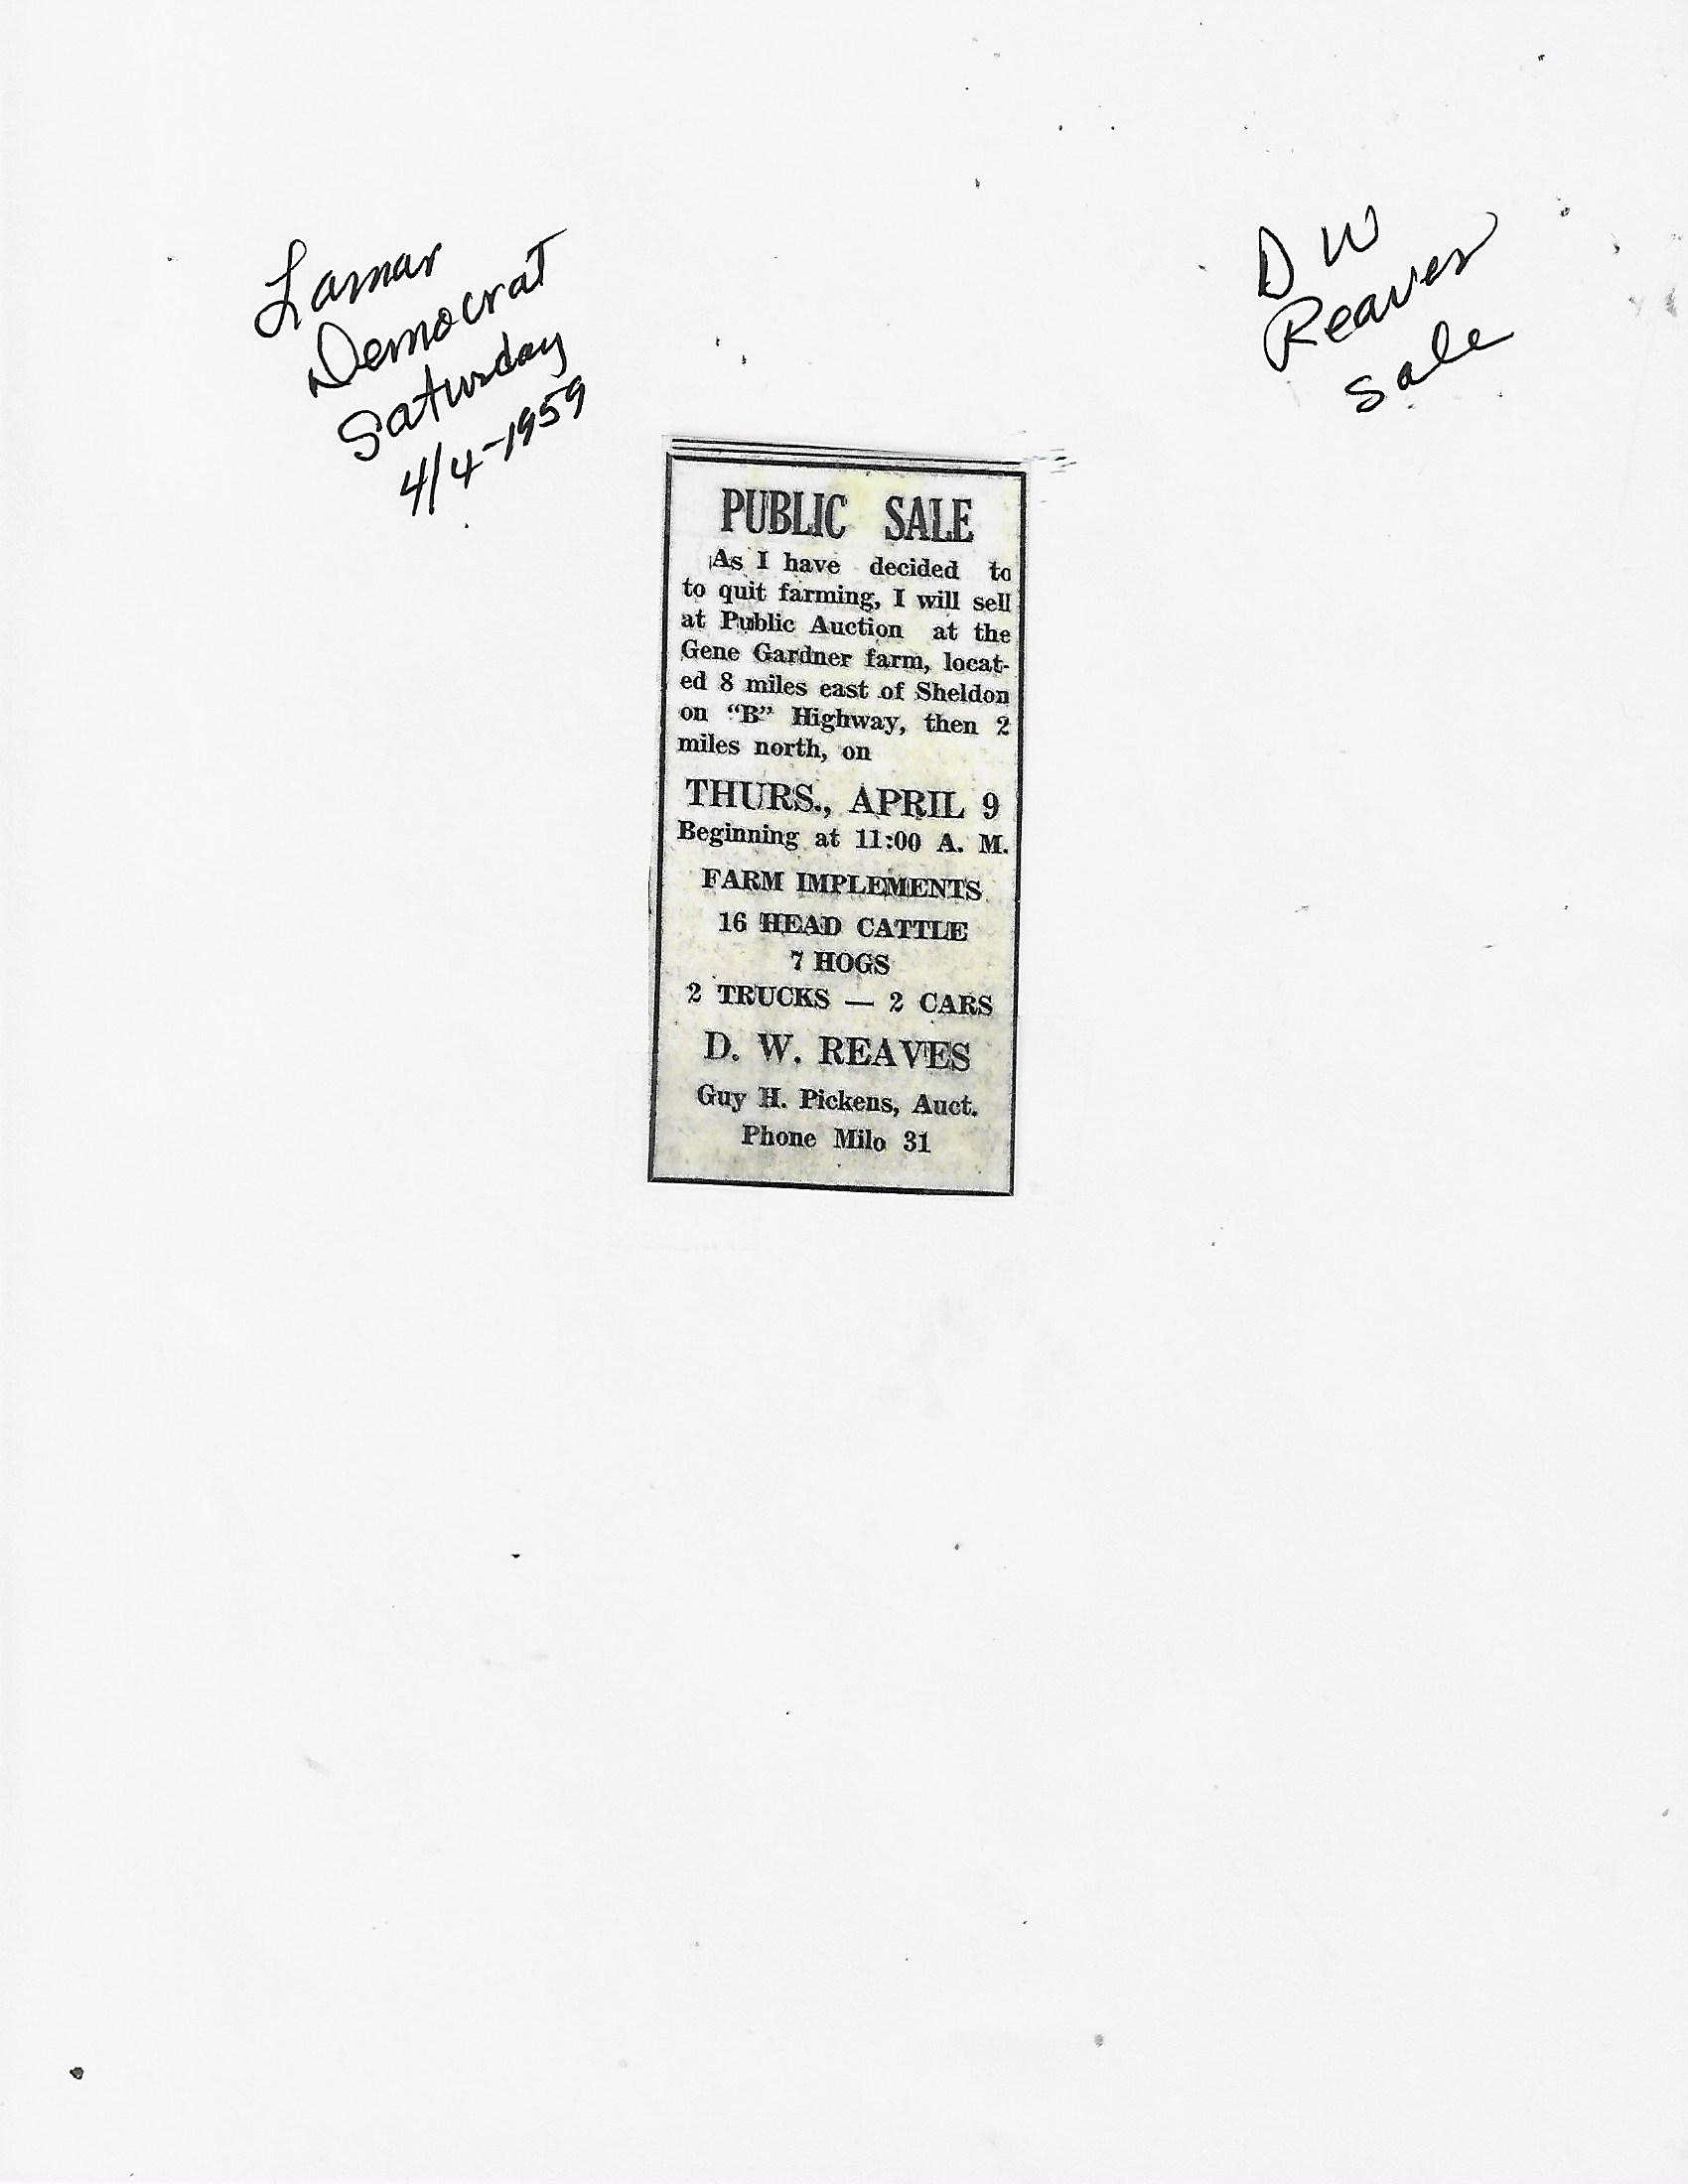 Lamar
Democrat
Saturday
4/4-1959
D W
Reaves
Sale
PUBLIC SALE
As I have decided to
to quit farming, I will sell
at Public Auction at the
Gene Gardner farm, locat-
ed 8 miles east of Sheldon
on “B” Highway, then 2
miles north, on
THURS., APRIL 9
Beginning at 11:00 A. M.
FARM IMPLEMENTS
16 HEAD CATTLE
7 HOGS
2 TRUCKS — 2 CARS
D. W. REAVES
Guy H. Pickens, Auct.
Phone Milo 31